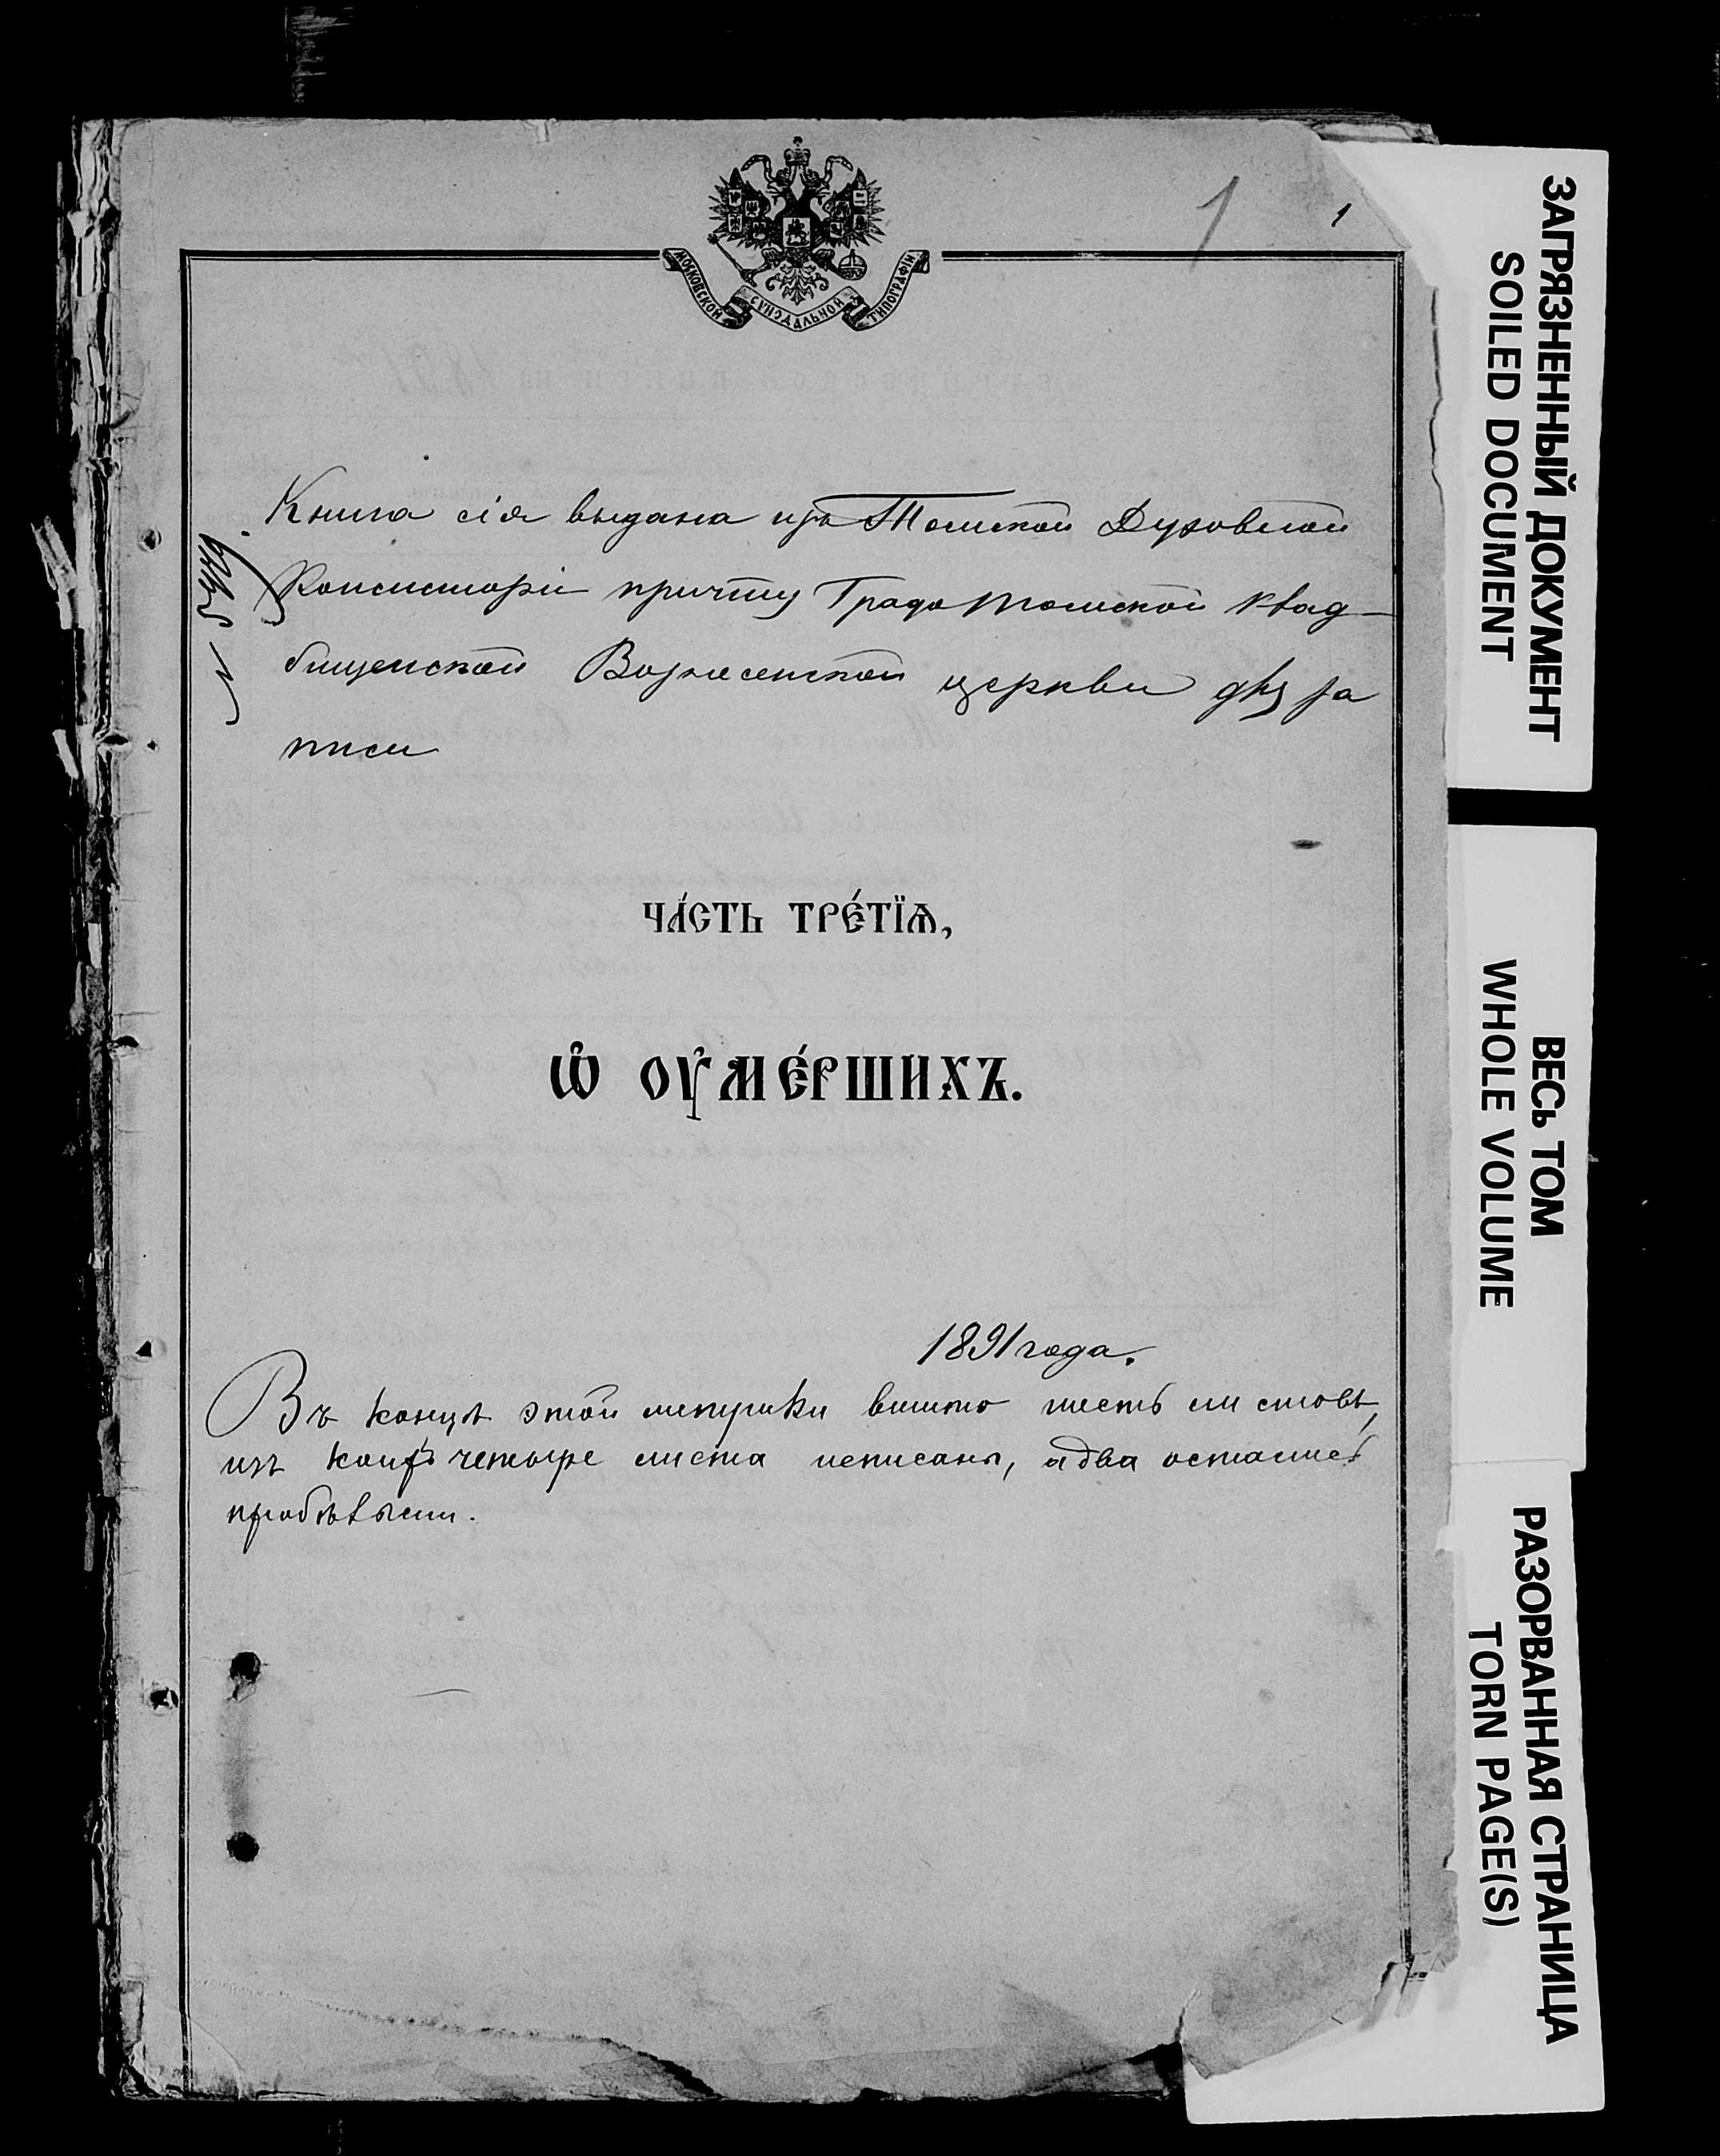 1
1
МОСКОВСКОЙ СѴНОДАЛЬНОЙ ТИПОГРАФІИ
Книга сія выдана изъ Томской Духовной
Консисторіи причту Градо Томской Клад-
бищенской Вознесенской церкви для за
писи
ЧА́СТЬ ТРЕ́ТЇѦ,
Ѡ҆ ОУ҆МЕ́РШИХЪ.
1891 года.
Въ концѣ этой метрики вшито шесть листовъ,
изъ коихъ четыре листа исписаны, а два остались
пробѣлыми.
ЗАГРЯЗНЕННЫЙ ДОКУМЕНТ
SOILED DOCUMENT
ВЕСЬ ТОМ
WHOLE VOLUME
РАЗОРВАННАЯ СТРАНИЦА
TORN PAGE(S)